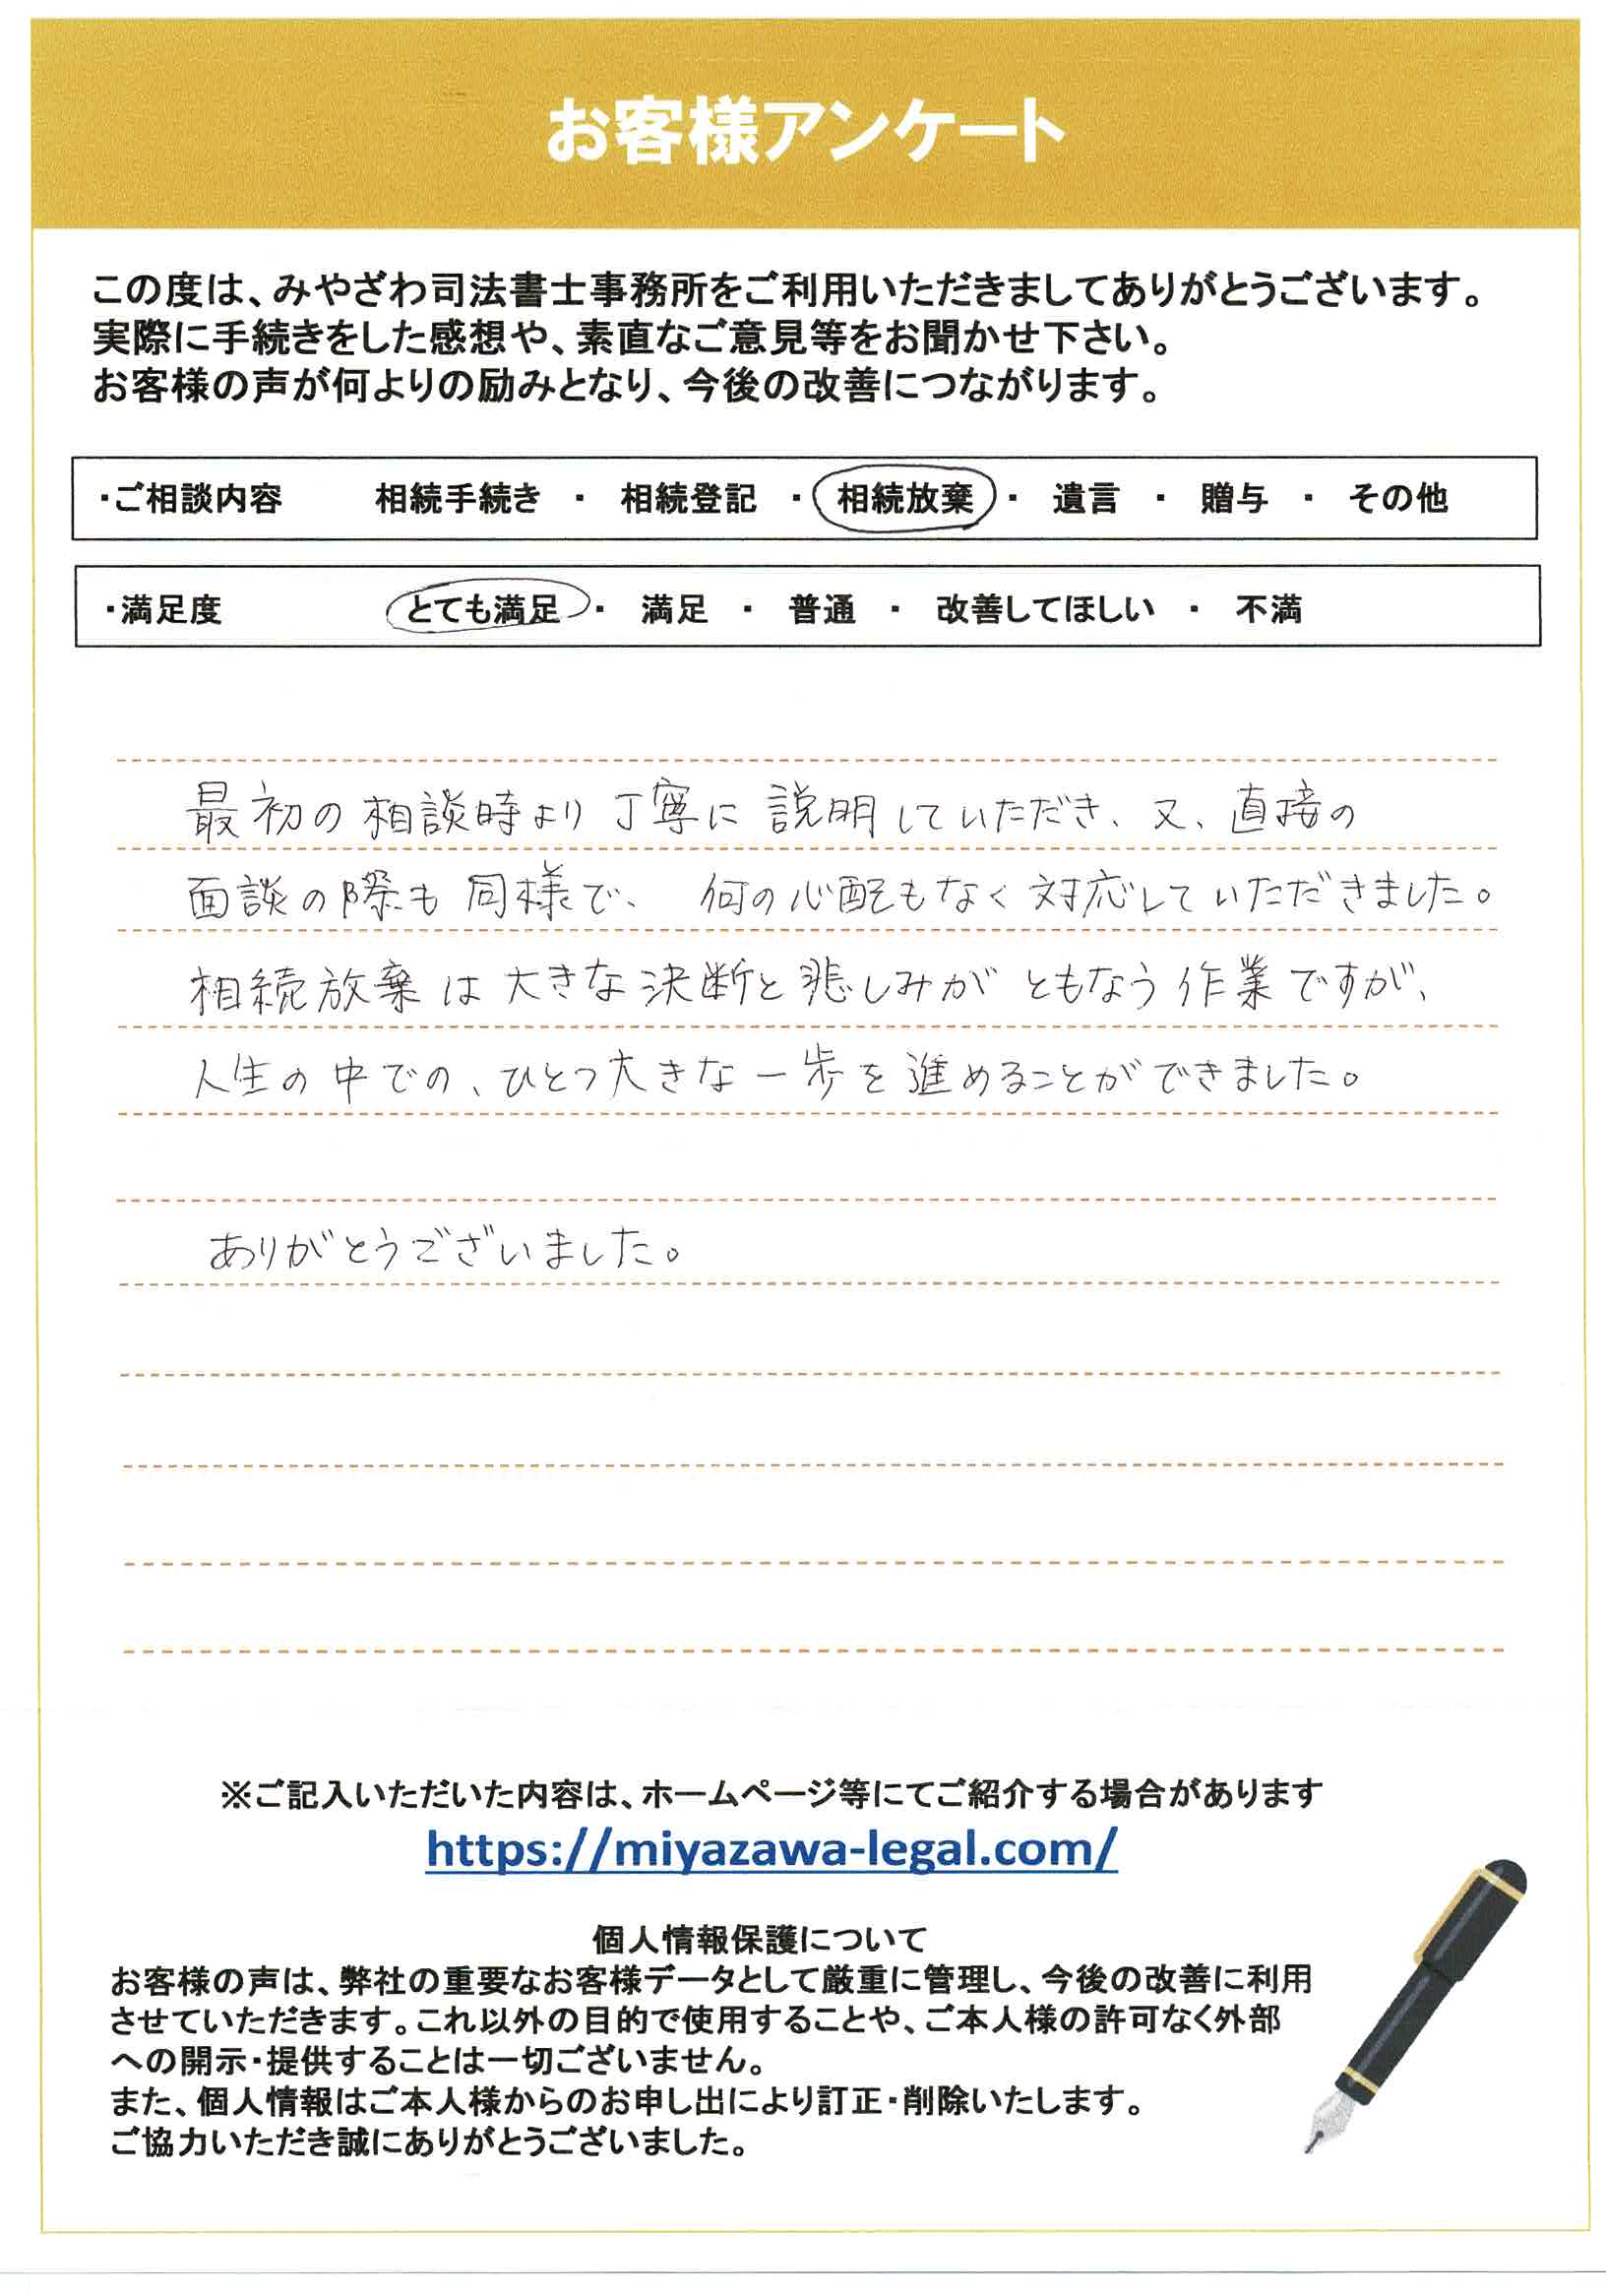 お客様アンケート
この度は、みやざわ司法書士事務所をご利用いただきましてありがとうございます。
実際に手続きをした感想や、素直なご意見等をお聞かせ下さい。
お客様の声が何よりの励みとなり、今後の改善につながります。
・ご相談内容 相続手続き ・ 相続登記 ・ 相続放棄 ・ 遺言 ・ 贈与 ・ その他
・満足度 とても満足 ・ 満足 ・ 普通 ・ 改善してほしい ・ 不満
最初の相談時より丁寧に説明していただき、又、直接の
面談の際も同様で、何の心配もなく対応していただきました。
相続放棄は大きな決断と悲しみがともなう作業ですが、
人生の中での、ひとつ大きな一歩を進めることができました。
ありがとうございました。
※ご記入いただいた内容は、ホームページ等にてご紹介する場合があります
https://miyazawa-legal.com/
個人情報保護について
お客様の声は、弊社の重要なお客様データとして厳重に管理し、今後の改善に利用
させていただきます。これ以外の目的で使用することや、ご本人様の許可なく外部
への開示・提供することは一切ございません。
また、個人情報はご本人様からのお申し出により訂正・削除いたします。
ご協力いただき誠にありがとうございました。